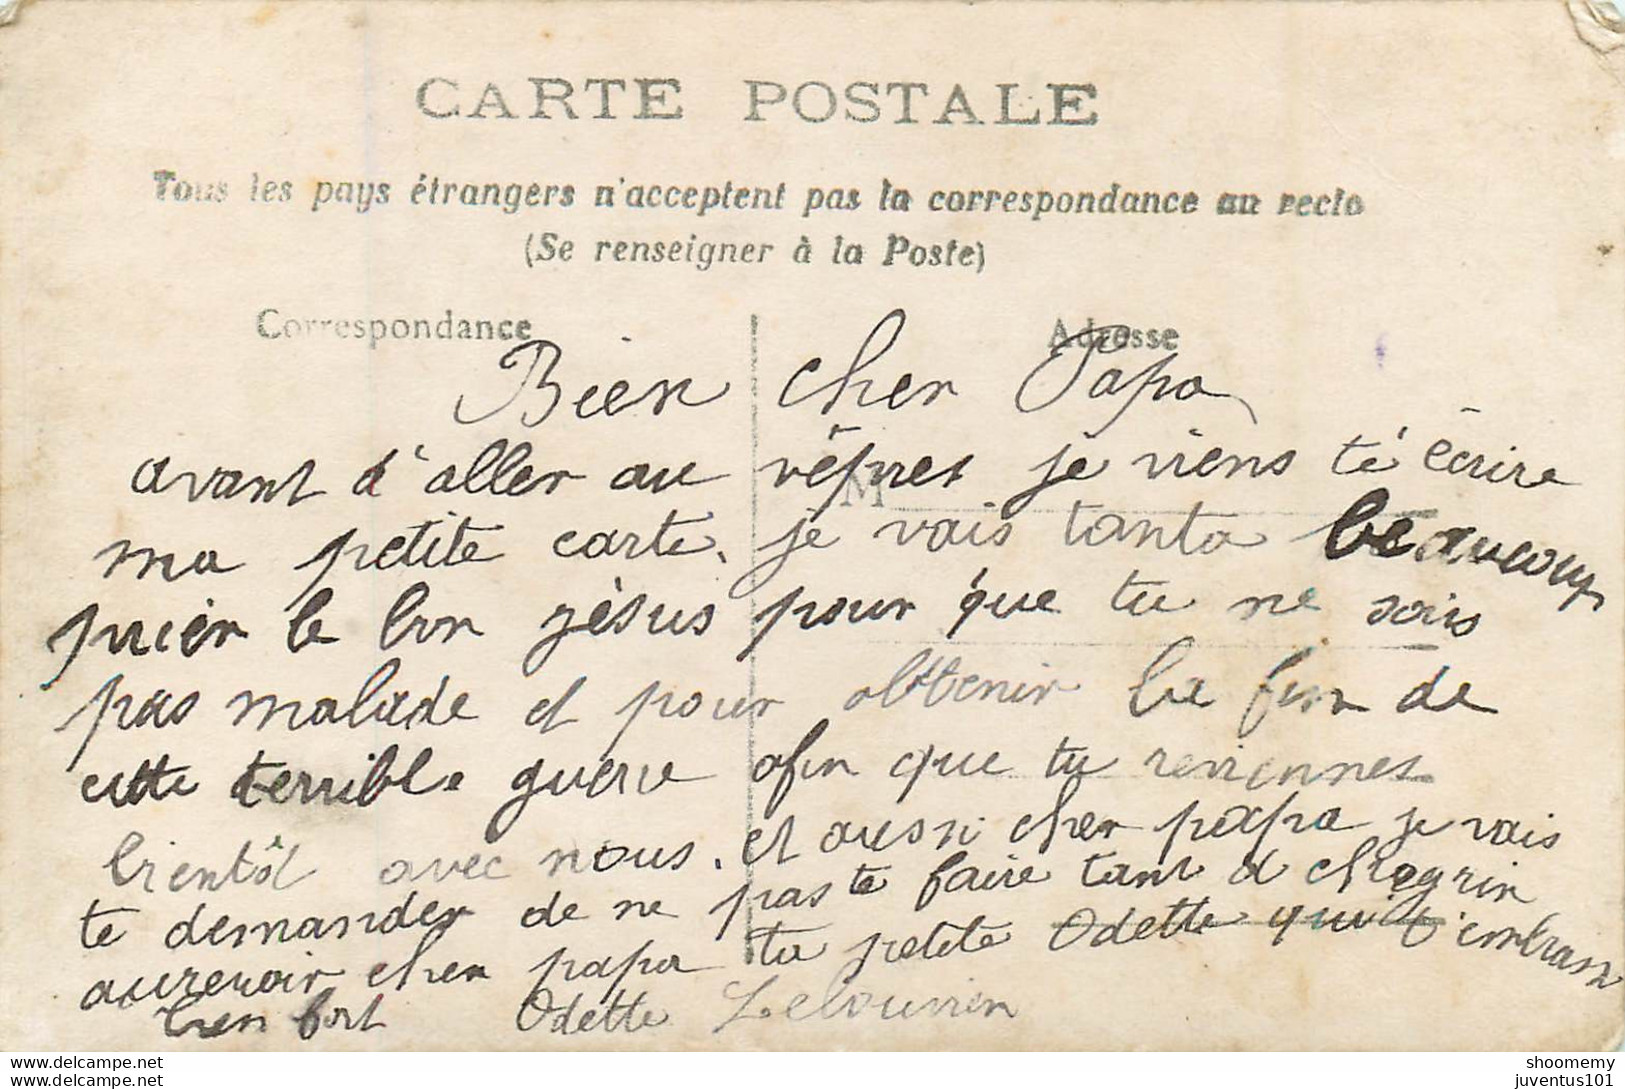 CARTE POSTALE
Tous les pays étrangers n'acceptent pas la correspondance au recto
(Se renseigner à la Poste)
Correspondance Adresse
Bien cher Papa
avant d'aller au vêpres je viens té écrire
M
ma petite carte. je vais tanto beaucoup
prier le bon jésus pour que tu ne sois
pas malade et pour obtenir la fin de
cette terrible guerre afin que tu reviennes
bientôt avec nous. et aussi cher papa je vais
te demander de ne pas te faire tant d chagrin
aurevoir cher papa ta petite Odette qui t'embrasse
bien fort Odette Lelouvrier
delcampe.net
delcampe.net
shoomemy
juventus101